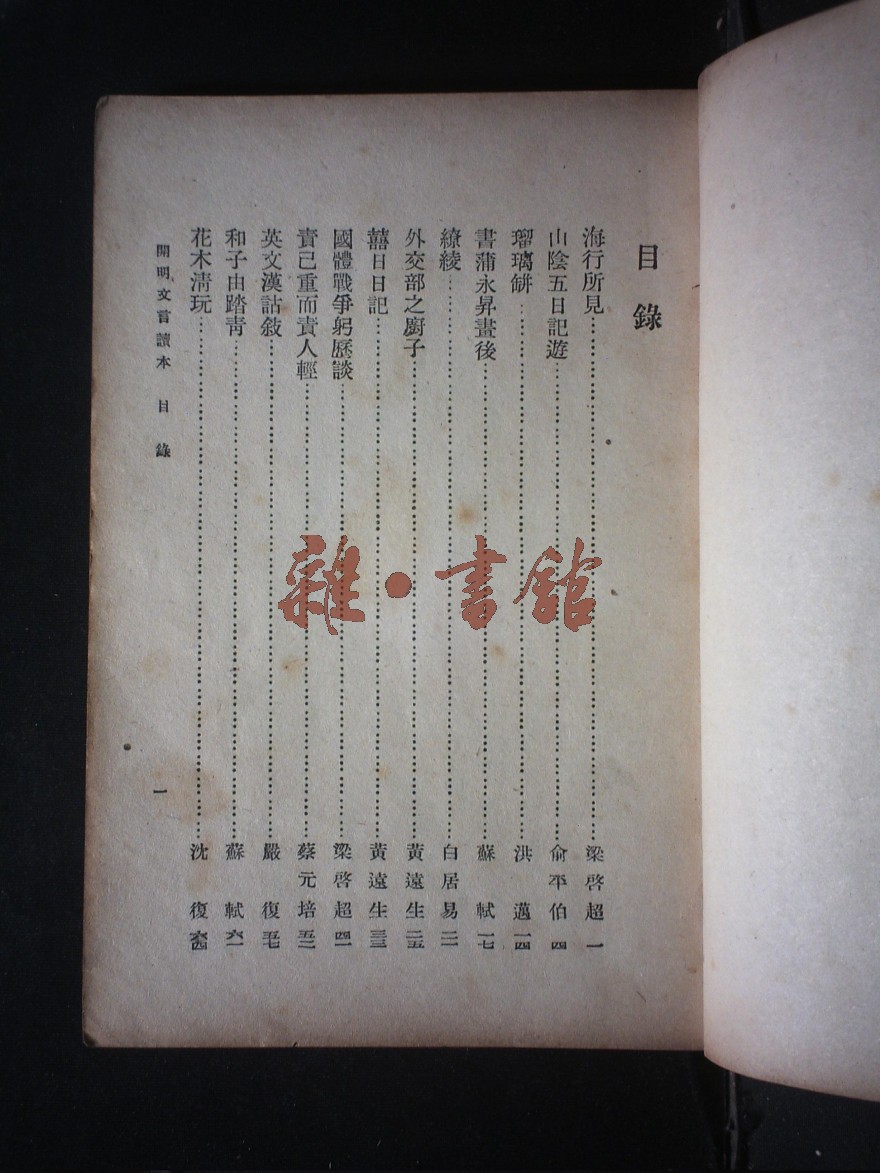 目錄
海行所見……梁啓超 一
山陰五日記遊……俞平伯 四
瑠璃缾……洪邁 一四
書蒲永昇畫後……蘇軾 一七
繚綾……白居易 二一
外交部之廚子……黃遠生 二五
囍日日記……黃遠生 三三
國體戰爭躬歷談……梁啓超 四一
責己重而責人輕……蔡元培 五二
英文漢詁敍……嚴復 五七
和子由踏靑……蘇軾 六一
花木淸玩……沈復 六四
開明文言讀本 目錄
一
雜·書館